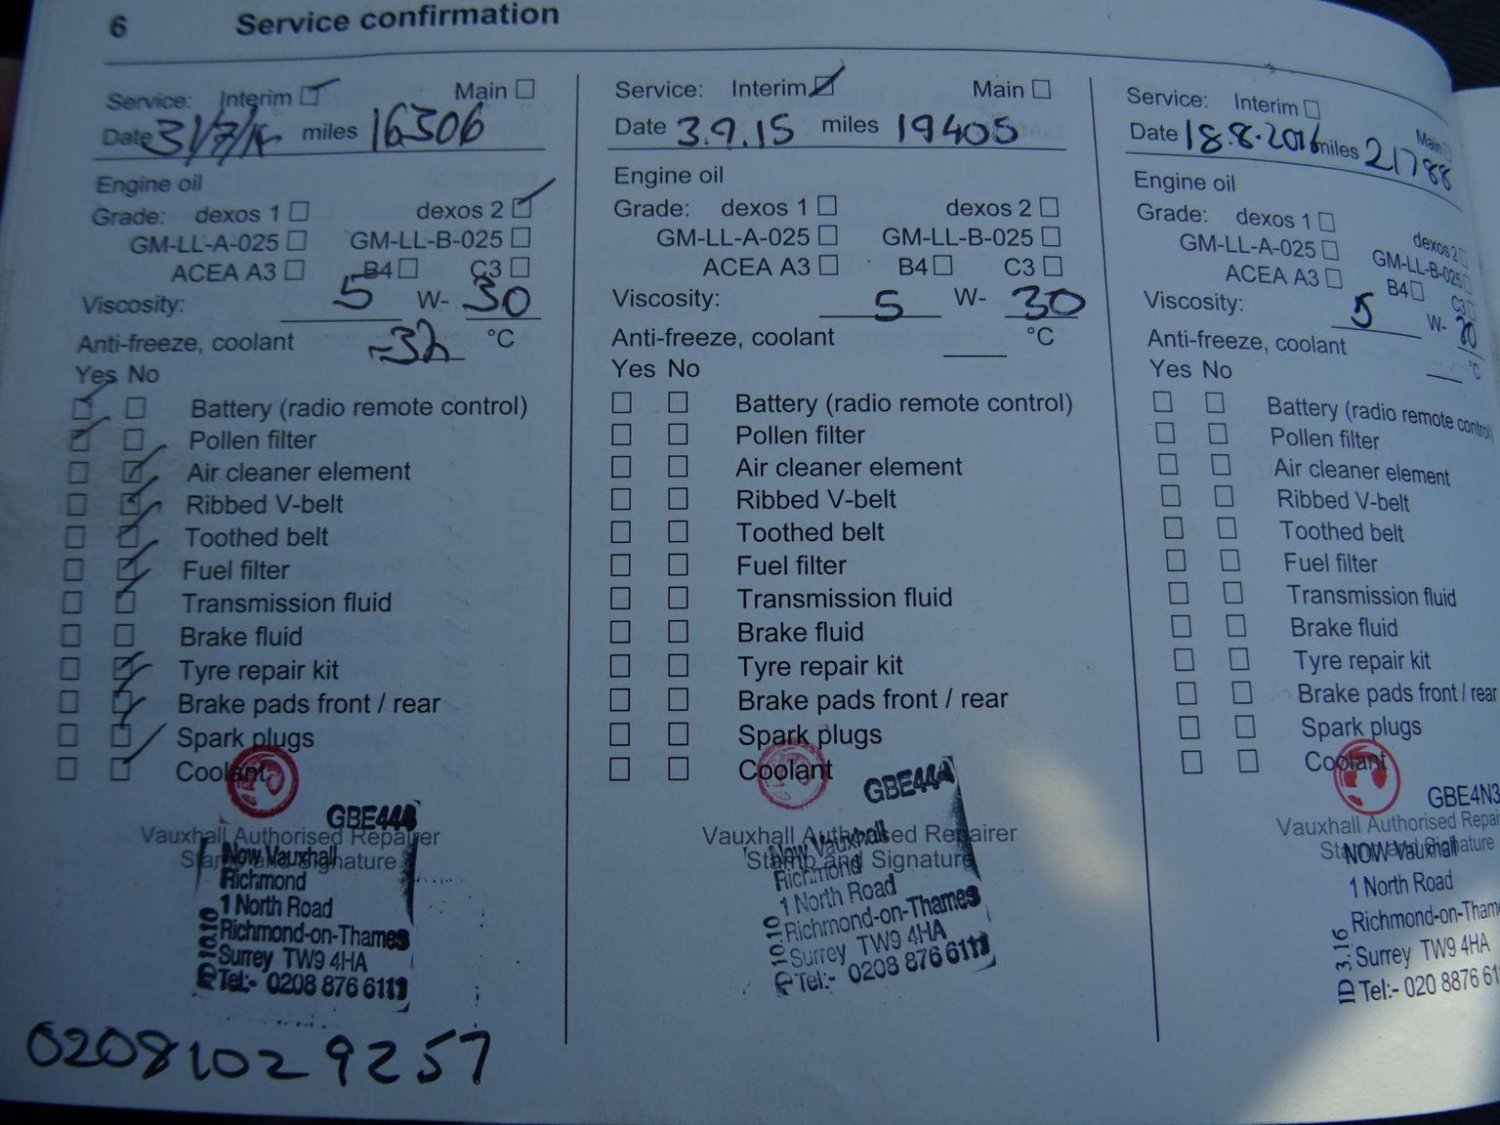 6 Service confirmation
Service: Interim Main
Date 31/7/14 miles 16306
Engine oil
Grade: dexos 1 dexos 2
GM-LL-A-025 GM-LL-B-025
ACEA A3 B4 C3
Viscosity: 5 W- 30
Anti-freeze, coolant -32 °C
Yes No
Battery (radio remote control)
Pollen filter
Air cleaner element
Ribbed V-belt
Toothed belt
Fuel filter
Transmission fluid
Brake fluid
Tyre repair kit
Brake pads front / rear
Spark plugs
Coolant
GBE444
Vauxhall Authorised Repairer
Stamp and Signature
Now Vauxhall
Richmond
1 North Road
Richmond-on-Thames
Surrey TW9 4HA
Tel:- 0208 876 6111
02081029257
Service: Interim Main
Date 3.9.15 miles 19405
Engine oil
Grade: dexos 1 dexos 2
GM-LL-A-025 GM-LL-B-025
ACEA A3 B4 C3
Viscosity: 5 W- 30
Anti-freeze, coolant °C
Yes No
Battery (radio remote control)
Pollen filter
Air cleaner element
Ribbed V-belt
Toothed belt
Fuel filter
Transmission fluid
Brake fluid
Tyre repair kit
Brake pads front / rear
Spark plugs
Coolant
GBE444
Vauxhall Authorised Repairer
Stamp and Signature
Now Vauxhall
Richmond
1 North Road
Richmond-on-Thames
Surrey TW9 4HA
Tel:- 0208 876 6111
Service: Interim Main
Date 18.8.2016 miles 21788
Engine oil
Grade: dexos 1 dexos 2
GM-LL-A-025 GM-LL-B-025
ACEA A3 B4 C3
Viscosity: 5 W- 30
Anti-freeze, coolant °C
Yes No
Battery (radio remote control
Pollen filter
Air cleaner element
Ribbed V-belt
Toothed belt
Fuel filter
Transmission fluid
Brake fluid
Tyre repair kit
Brake pads front / rear
Spark plugs
Coolant
GBE4N3
Vauxhall Authorised Repai
Stamp and Signature
NOW Vauxhall
1 North Road
Richmond-on-Tham
Surrey TW9 4HA
Tel:- 020 8876 61
ID 3.16